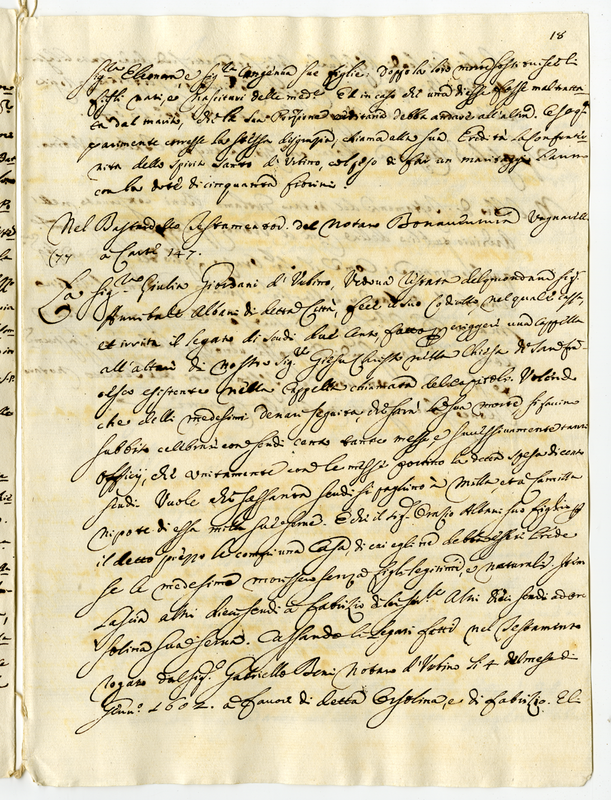 18
Sig.ra Eleonora e Sig.ra Congenna sue figlie; doppo la loro morte sostituisce li
figli nati, e nascituri delle med.e Et in caso che una di esse fosse mal tratta
ta dal marito, che la sua Porzione reditaria debba andare all'altra. E se
parimente avesse la stessa disgrazia, chiama alla sua Eredità la Confrater
nita dello Spirito Santo di Urbino, col peso di far un maritaggio l'anno
con la dote di cinquanta fiorini.
Nel Bastardello Testamentor. del Notaro Bonaventura
a Carte 147.
La Sig.ra Giulia Giordani d'Urbino, Vedova lasciata del quondam Sig.
Annibale Albani di detta Città, fece il suo Codicillo, nel quale cassa,
et irrita il legato di Scudi due cento, fatto per erigere una Cappella
all'altare di Nostro Sig.re Giesù Christo nella Chiesa di San Fran
cesco esistente nella Cappella chiamata del Capitolo. Volendo
che delli medesimi denari seguita, che sarà la sua morte, si faccino
subbito celebrare con scudi cento tante messe e successivamente tanti
officij, che unitamente con le messe portino la detta spesa di cento
scudi. Vuole che sessanta scudi si paghino à Milla, età Camilla
nipote di essa quando Sig. Orazio Albani suo figlio
il detto prezzo la compri una Casa, di cui egli ne debba essere Erede
se la medesima morisse senza figli legitimi, e naturali. Item
Lascia altri dieci scudi à Fabrizio Altri dieci scudi ad Or
solina sua serva. Cassando li legati fatti nel Testamento
rogato dal Sig.r Gabriello Beni Notaro d'Urbino li 4 del mese di
Genn.o 1602. a favore di detta Orsolina, e di Fabrizio. El